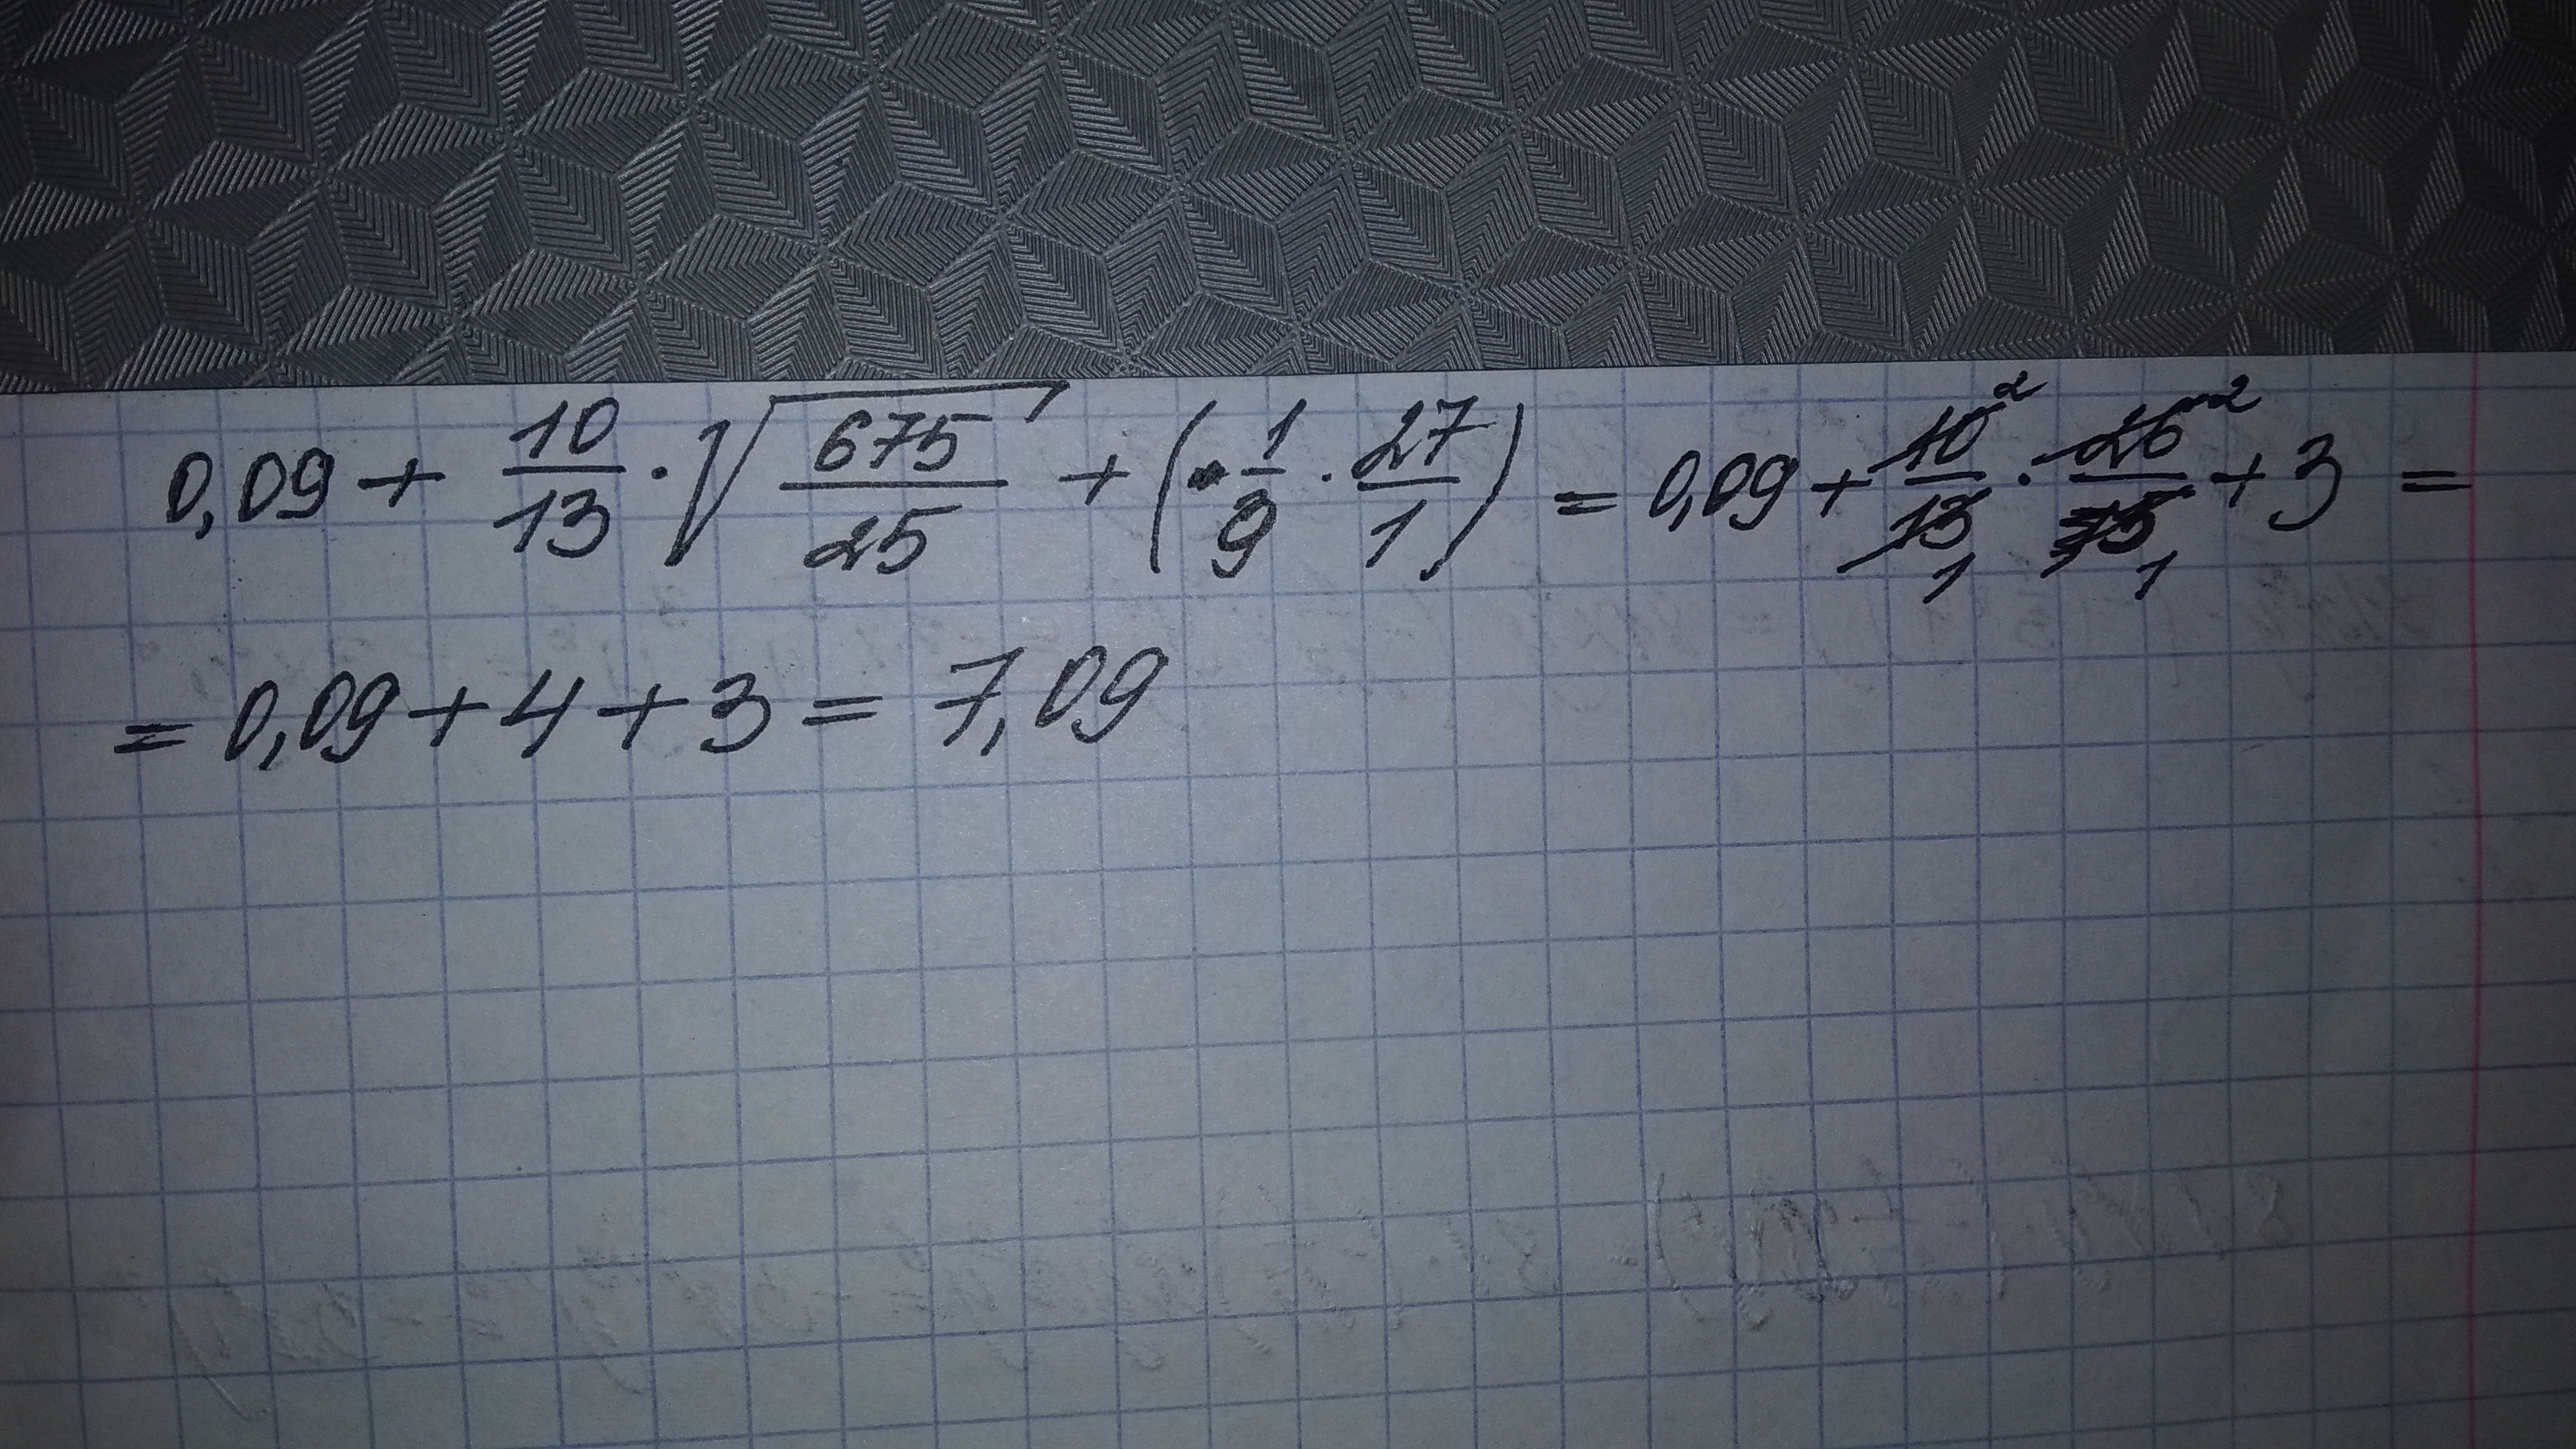 0,09 + 10/13 · √(675/25) + (1/9 · 27/1) = 0,09 + 10²/13₁ · 26²/5₁ + 3 =
= 0,09 + 4 + 3 = 7,09